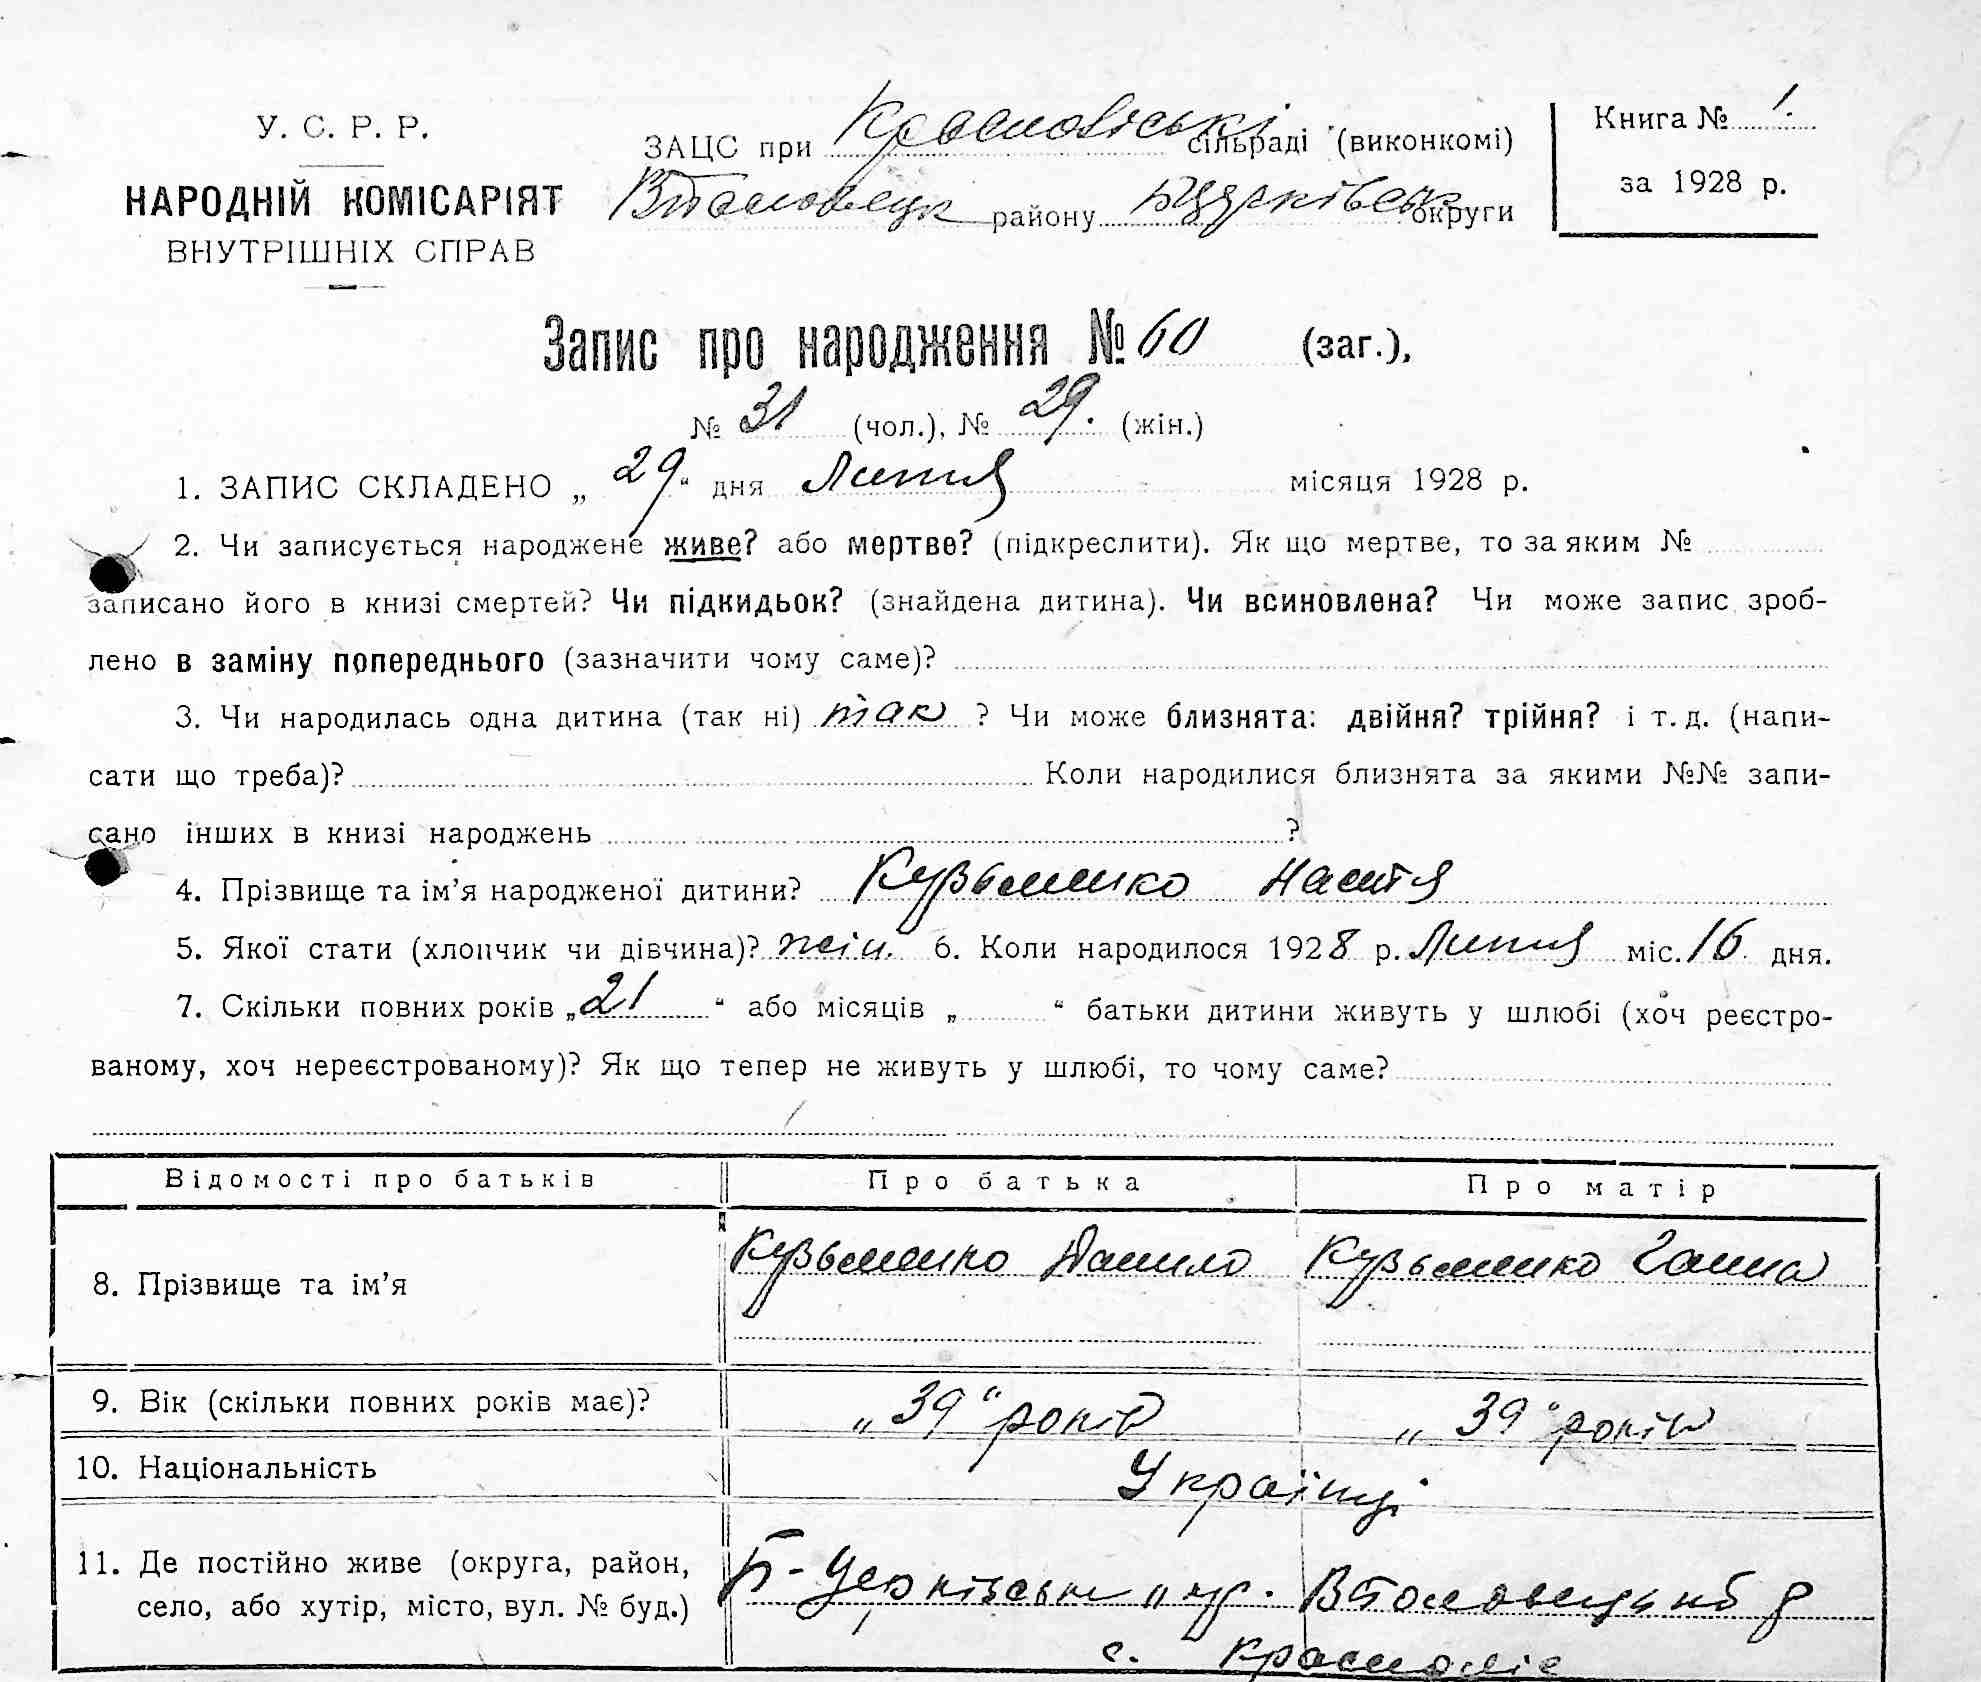 У. С. Р. Р.
НАРОДНІЙ КОМІСАРІЯТ
ВНУТРІШНІХ СПРАВ
ЗАЦС при сільраді (виконкомі)
району округи
Книга № 1
за 1928 р.
Запис про народження № 60 (заг.),
№ 31 (чол.), № 29. (жін.)
1. ЗАПИС СКЛАДЕНО „ 29 “ дня Липня місяця 1928 р.
2. Чи записується народжене живе? або мертве? (підкреслити). Як що мертве, то за яким №
записано його в книзі смертей? Чи підкидьок? (знайдена дитина). Чи всиновлена? Чи може запис зроб-
лено в заміну попереднього (зазначити чому саме)?
3. Чи народилась одна дитина (так ні) так ? Чи може близнята: двійня? трійня? і т. д. (напи-
сати що треба)? Коли народилися близнята за якими №№ запи-
сано інших в книзі народжень ?
4. Прізвище та ім’я народженої дитини? Кузьменко Настя
5. Якої стати (хлопчик чи дівчина)? жін. 6. Коли народилося 1928 р. Липня міс. 16 дня.
7. Скільки повних років „ 21 “ або місяців „ “ батьки дитини живуть у шлюбі (хоч реєстро-
ваному, хоч нереєстрованому)? Як що тепер не живуть у шлюбі, то чому саме?
Відомості про батьків Про батька Про матір
8. Прізвище та ім’я Кузьменко Данило Кузьменко Ганна
9. Вік (скільки повних років має)? „ 39 “ років „ 39 “ років
10. Національність Українці
11. Де постійно живе (округа, район,
село, або хутір, місто, вул. № буд.)
Б-Церківськ окр. р
с.